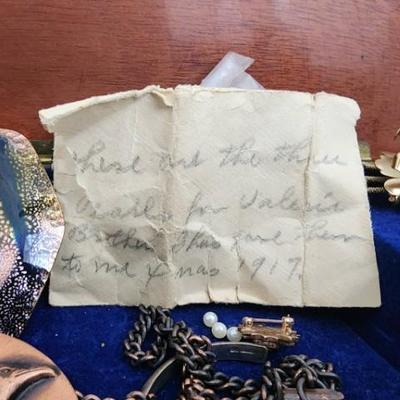 These are the three
Pearls for Valerie
Brother gave them
to me Xmas 1917.